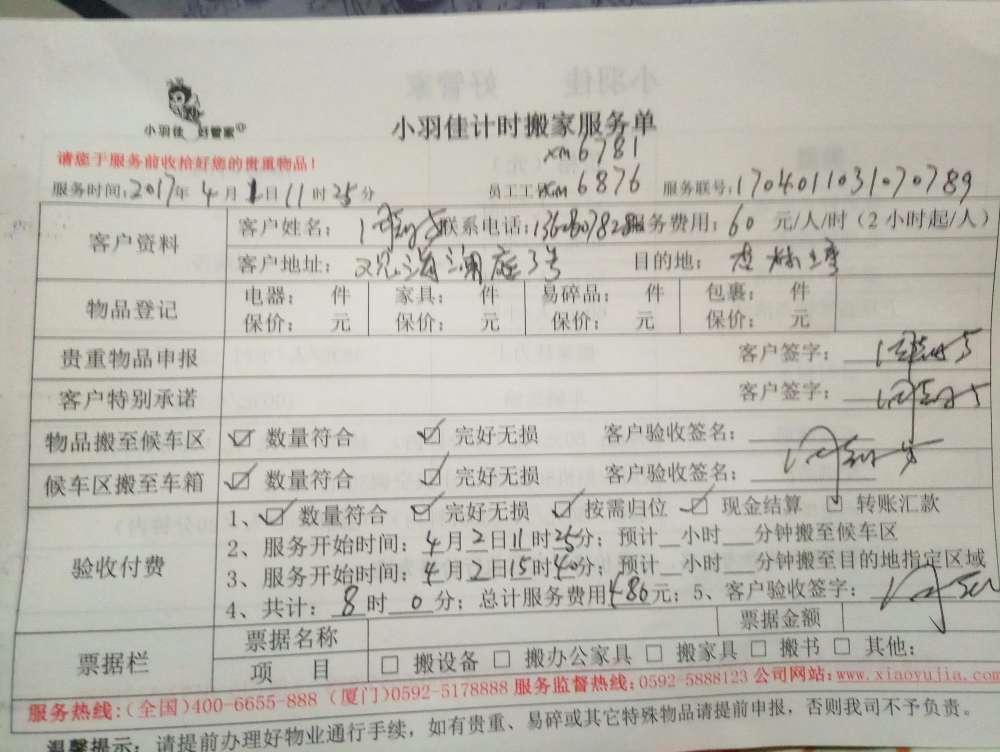 小羽佳 好管家
小羽佳计时搬家服务单
xm6781
请您于服务前收拾好您的贵重物品!
服务时间:2017年4月2日11时25分 员工工号xm6876 服务联号:1704011031070789
客户资料
客户姓名: 联系电话: 服务费用:60元/人/时(2小时起/人)
客户地址: 观海澜庭3号 目的地:
物品登记
电器: 件 家具: 件 易碎品: 件 包裹: 件
保价: 元 保价: 元 保价: 元 保价: 元
贵重物品申报 客户签字:
客户特别承诺 客户签字:
物品搬至候车区 ☑ 数量符合 ☑ 完好无损 客户验收签名:
候车区搬至车箱 ☑ 数量符合 ☑ 完好无损 客户验收签名:
验收付费
1、☑ 数量符合 ☑ 完好无损 ☑ 按需归位 ☑ 现金结算 □ 转账汇款
2、服务开始时间:4月2日11时25分;预计__小时___分钟搬至候车区
3、服务开始时间:4月2日15时40分;预计__小时___分钟搬至目的地指定区域
4、共计:8时0分;总计服务费用480元;5、客户验收签字:
票据栏
票据名称 票据金额
项 目 □ 搬设备 □ 搬办公家具 □ 搬家具 □ 搬书 □ 其他:
服务热线:(全国)400-6655-888 (厦门)0592-5178888 服务监督热线:0592-5888123 公司网站:www.xiaoyujia.com
温馨提示:请提前办理好物业通行手续,如有贵重、易碎或其它特殊物品请提前申报,否则我司不予负责。